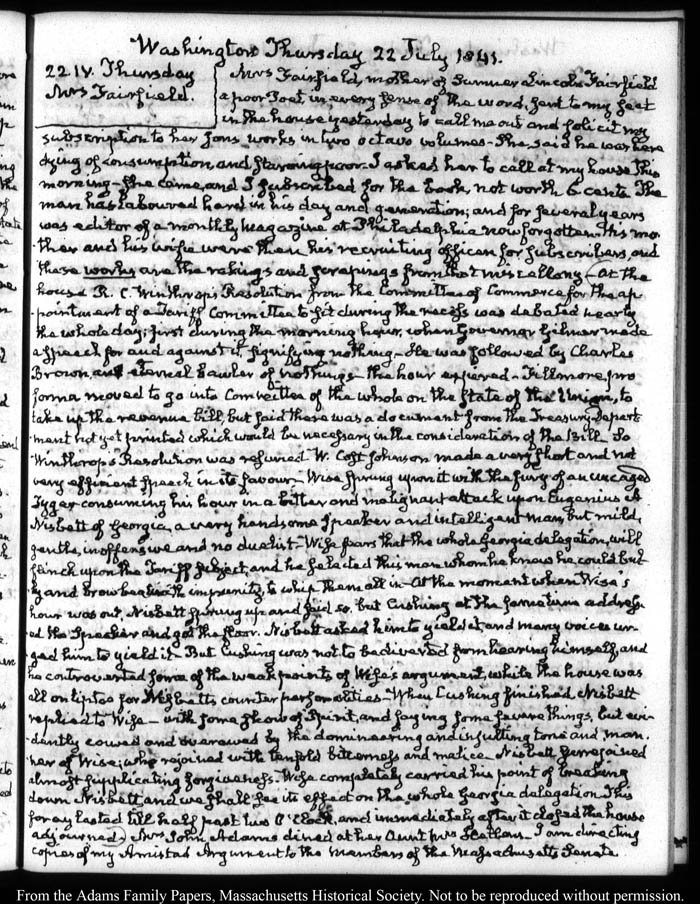 Washington Thursday 22 July 1841.
22. IV. Thursday
Mrs Fairfield.
Mrs Fairfield, mother of Sumner Lincoln Fairfield
a poor Poet in every sense of the word, sent to my seat
in the house yesterday to call me out and solicit my
subscription to her Sons works in two octavo volumes— She said he was here
dying of consumption and starving poor. I asked her to call at my house this
morning— She came, and I subscribed for the book, not worth 6 cents. The
man has laboured hard in his day and generation; and for several years
was editor of a monthly Magazine at Philadelphia now forgotten. His mo-
ther and his wife were then his recruiting officers for subscribers, and
these works are the rakings and scrapings from that miscellany— At the
house R. C. Winthrop's Resolution from the Committee of Commerce for the ap-
pointment of a Tariff Committee to sit during the recess was debated nearly
the whole day; first during the morning hour, when Governor Gilmer made
a speech for and against it, signifying nothing— He was followed by Charles
Brown, an eternal bawler of nothings— the hour expired— Fillmore pro
forma moved to go into Committee of the whole on the State of the Union, to
take up the revenue bill, but said there was a document from the Treasury Depart-
ment not yet printed which would be necessary in the consideration of the Bill. So
Winthrop's Resolution was resumed. W. Cost Johnson made a very short and not
very efficient speech in its favour— Wise sprung upon it with the fury of an uncaged
Tyger consuming his hour in a bitter and malignant attack upon Eugenius A
Nisbett of Georgia, a very handsome Speaker and intelligent man, but mild,
gentle, inoffensive and no duelist— Wise fears that the whole Georgia delegation, will
flinch upon the Tariff subject, and he selected this man whom he knew he could bul-
ly and browbeat with impunity, to whip them all in— At the moment when Wise's
hour was out, Nisbett sprung up and said so, but Cushing at the same time address-
ed the Speaker and got the floor. Nisbett asked him to yield it, and many voices ur-
ged him to yield it— But Cushing was not to be diverted from hearing himself, and
he controverted some of the weak points of Wise's argument, while the house was
all on tiptoe for Nisbetts counter personalities— When Cushing finished Nisbett
replied to Wise— with some show of Spirit, and saying some severe things, but evi-
dently cowed and overawed by the domineering and insulting tone and man-
ner of Wise; who rejoined with tenfold bitterness and malice. Nisbett surrejoined
almost supplicating forgiveness. Wise completely carried his point of breaking
down Nisbett and we shall see its effect on the whole Georgia delegation. This
foray lasted till half past two O'Clock, and immediately after it closed the house
adjourned— Mrs John Adams dined at her Aunt Mrs I am directing
copies of my Amistad Argument to the members of the Massachusetts Senate
From the Adams Family Papers, Massachusetts Historical Society. Not to be reproduced without permission.